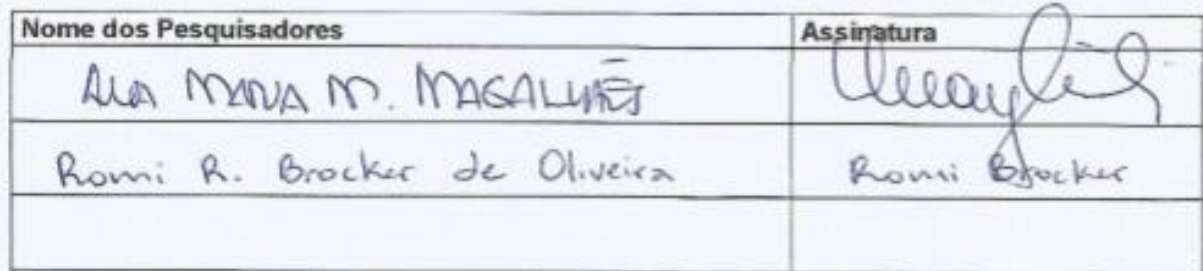 Nome dos Pesquisadores Assinatura
MAGALHÃES
Romi R. Brocker de Oliveira Romi Brocker